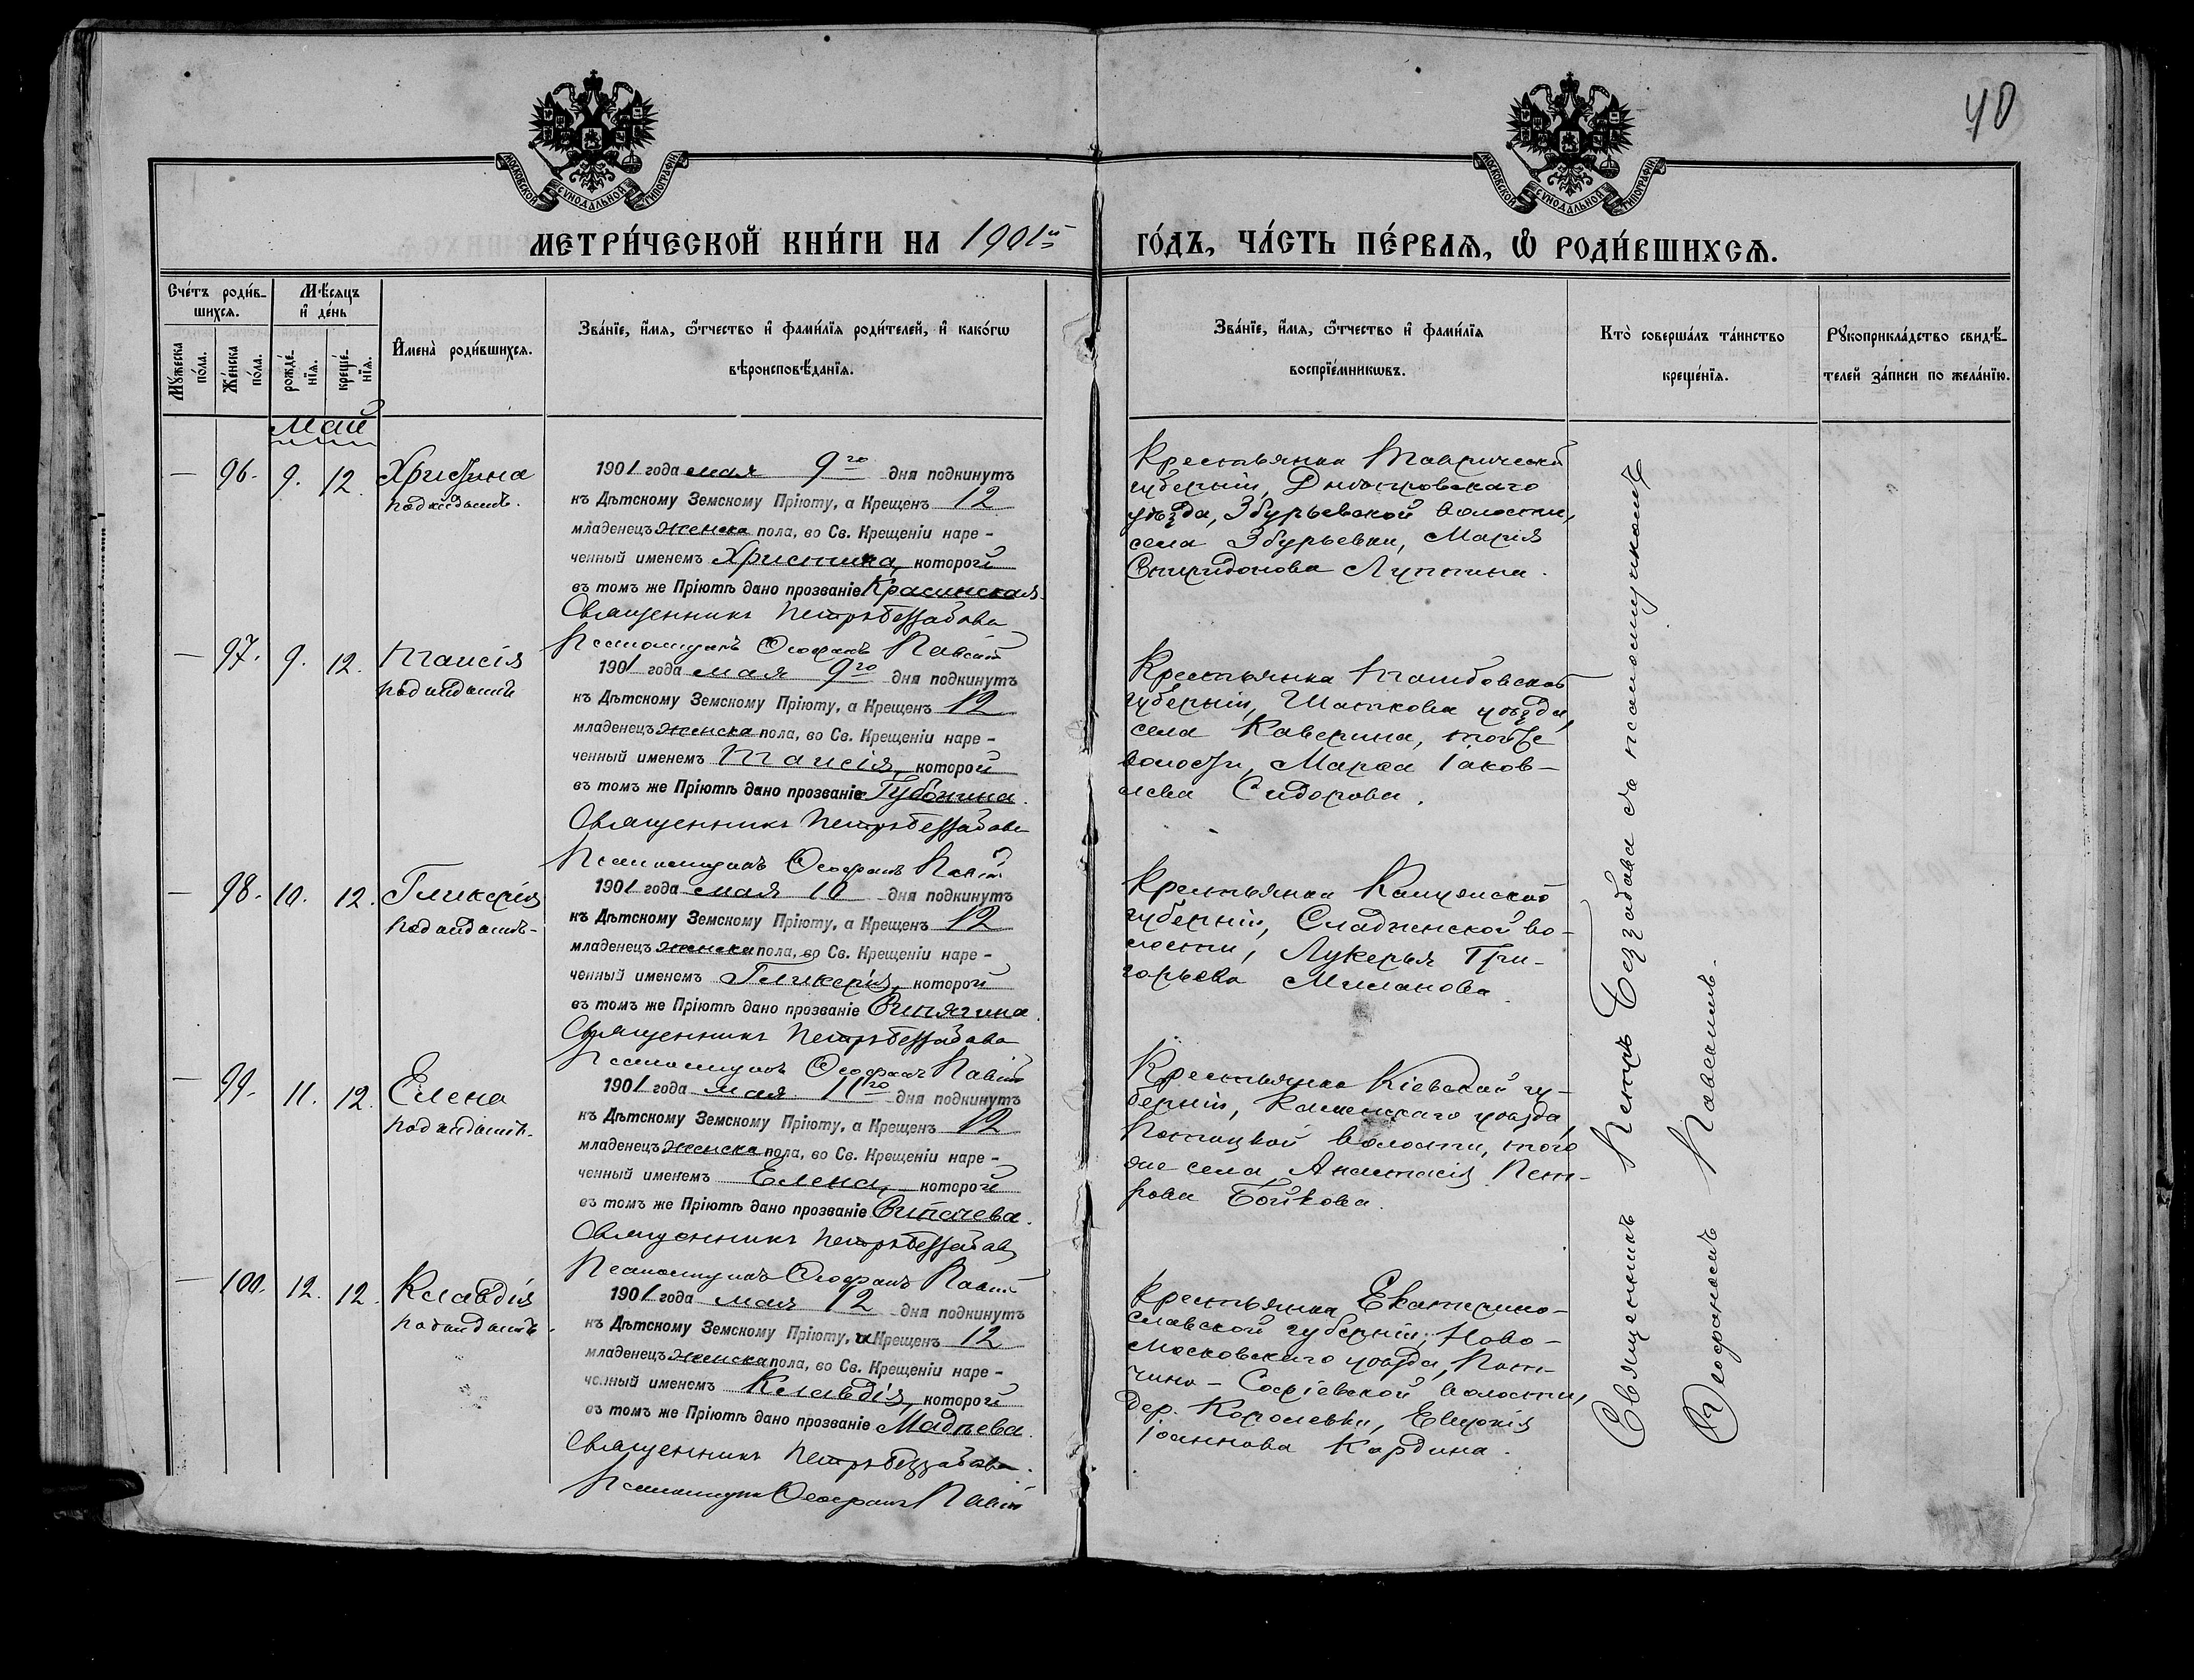 40
МОСКОВСКОЙ СѴНОДАЛЬНОЙ ТИПОГРАФІИ
МОСКОВСКОЙ СѴНОДАЛЬНОЙ ТИПОГРАФІИ
МЕТРИ́ЧЕСКОЙ КНИ́ГИ НА 1901й
ГО́ДЪ, ЧА́СТЬ ПЕ́РВАѦ, Ѽ РОДИ́ВШИХСѦ.
Сче́тъ роди́в-
шихсѧ.
Мꙋ́жеска по́ла.
Же́нска по́ла.
Мѣ́сѧцъ
и҆ де́нь
рожде́-
нїѧ.
креще́-
нїѧ.
И҆мена̀ роди́вшихсѧ.
Зва́нїе, и҆́мѧ, ѻ҆́тчество и҆ фами́лїѧ роди́телей, и҆ како́гѡ
вѣроисповѣ́данїѧ.
Зва́нїе, и҆́мѧ, ѻ҆́тчество и҆ фами́лїѧ
воспрїе́мникѡвъ.
Кто̀ соверша́лъ та́инство
креще́нїѧ.
Рꙋкоприкла́дство свидѣ́-
телей за́писи по жела́нїю.
Май
— 96. 9. 12. Христина
подкидышъ.
1901 года мая 9го дня подкинутъ
къ Дѣтскому Земскому Пріюту, а Крещенъ 12
младенецъ женска пола, во Св. Крещеніи наре-
ченный именемъ Христина, которой
въ томъ же Пріютѣ дано прозваніе Красинская.
Священникъ Петръ Беззабава
Псаломщикъ Ѳеофанъ
Крестьянка Таврической
губерніи, Днѣпровскаго
уѣзда, Збурьевской волости,
села Збурьевки, Марія
Спиридонова
— 97. 9. 12. Таисія
подкидышъ
1901 года мая 9го дня подкинутъ
къ Дѣтскому Земскому Пріюту, а Крещенъ 12
младенецъ женска пола, во Св. Крещеніи наре-
ченный именемъ Таисія, которой
въ томъ же Пріютѣ дано прозваніе Губонина.
Священникъ Петръ Беззабава
Псаломщикъ Ѳеофанъ
Крестьянка Тамбовской
губерніи, Шацкова уѣзда,
села Каверина, тойже
волости, Марѳа Іаков-
лева Сидорова.
— 98. 10. 12. Гликерія
подкидышъ-
1901 года мая 10 дня подкинутъ
къ Дѣтскому Земскому Пріюту, а Крещенъ 12
младенецъ женска пола, во Св. Крещеніи наре-
ченный именемъ Гликерія, которой
въ томъ же Пріютѣ дано прозваніе
Священникъ Петръ Беззабава
Псаломщикъ Ѳеофанъ
Крестьянка
губерніи, во-
лости, Лукерья Гри-
горьева Миланова
— 99. 11. 12. Елена
подкидышъ.
1901 года мая 11го дня подкинутъ
къ Дѣтскому Земскому Пріюту, а Крещенъ 12
младенецъ женска пола, во Св. Крещеніи наре-
ченный именемъ Елена, которой
въ томъ же Пріютѣ дано прозваніе
Священникъ Петръ Беззабава
Псаломщикъ Ѳеофанъ
Крестьянка Кіевской гу-
берніи, уѣзда,
волости, того
же села Анастасія Пет-
рова Бойкова.
— 100. 12. 12. Клавдія
подкидышъ.
1901 года мая 12 дня подкинутъ
къ Дѣтскому Земскому Пріюту, а Крещенъ 12
младенецъ женска пола, во Св. Крещеніи наре-
ченный именемъ Клавдія, которой
въ томъ же Пріютѣ дано прозваніе
Священникъ Петръ Беззабава.
Псаломщикъ Ѳеофанъ
Крестьянка Екатерино-
славской губерніи, Ново-
московскаго уѣзда,
Софіевской волости,
дер. Королевки,
Іоаннова Кардина.
Священникъ Петръ Беззабава съ псаломщикомъ
Ѳеофаномъ